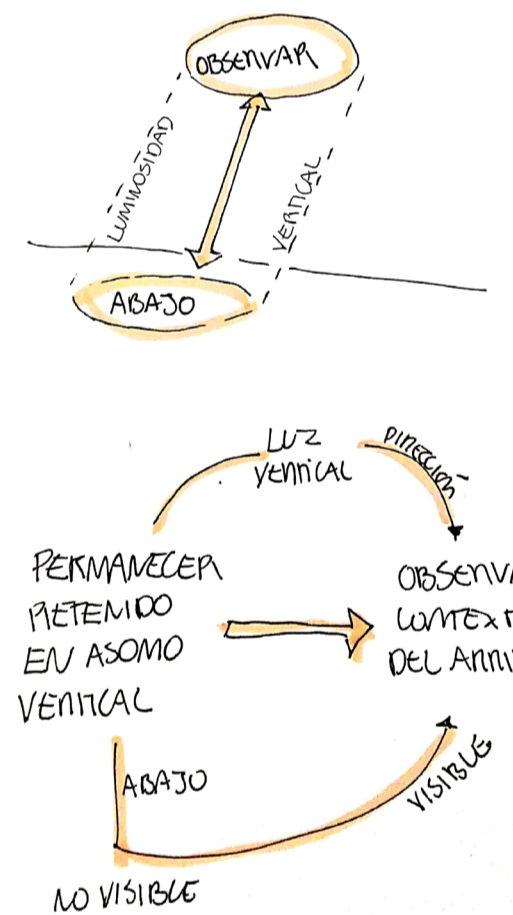 OBSERVAR
LUMINOSIDAD
VERTICAL
ABAJO
LUZ
VERTICAL
DIRECCIÓN
PERMANECER
RETENIDO
EN ASOMO
VERTICAL
DEL
ABAJO
VISIBLE
NO VISIBLE